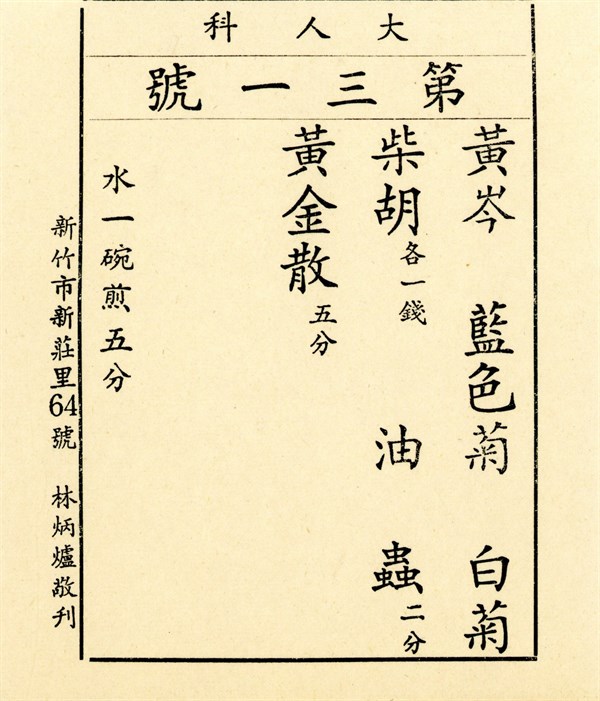 大人科
第三一號
黃岑 藍色菊 白菊
柴胡各一錢 油 蟲二分
黃金散五分
水一碗煎五分
新竹市新莊里64號 林炳爐敬刊